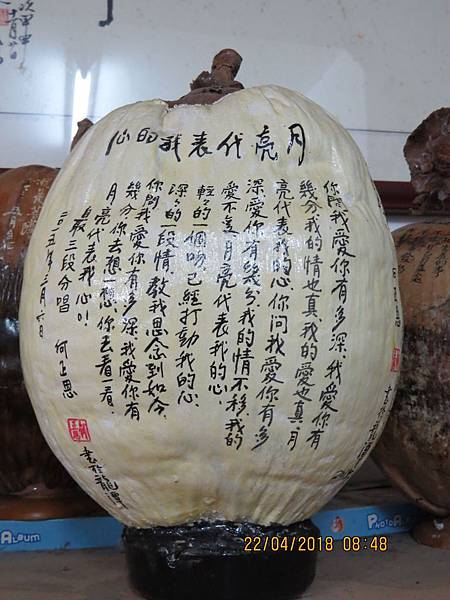 月亮代表我的心
你問我愛你有多深,我愛你有
幾分,我的情也真,我的愛也真,月
亮代表我的心,你問我愛你有多
深,愛你有幾分,我的情不移,我的
愛不変,月亮代表我的心,
輕々的一個吻,已經打動我的心,
深々的一段情,教我思念到如今,
你問我愛你有多深,我愛你有
幾分,你去想一想,你去看一看,
月亮代表我心!!
三段分唱
月六日
書於龍潭
ALBUM
PHOTOALBUM
22/04/2018 08:48